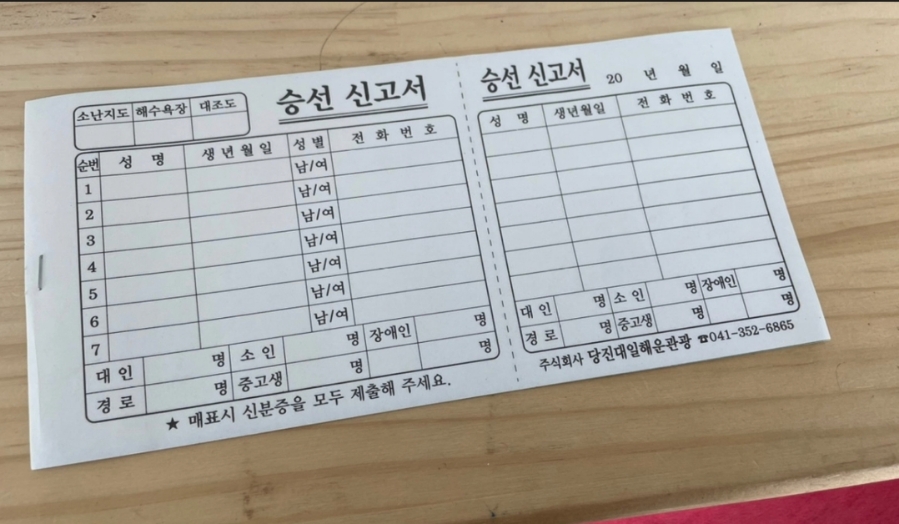 승선 신고서
소난지도 해수욕장 대조도
순번 성 명 생 년 월 일 성 별 전 화 번 호
1 남/여
2 남/여
3 남/여
4 남/여
5 남/여
6 남/여
7 남/여
대 인 명 소 인 명 장애인 명
경 로 명 중고생 명 명
★ 매표시 신분증을 모두 제출해 주세요.
승선 신고서 20 년 월 일
성 명 생년월일 전 화 번 호
대 인 명 소 인 명 장애인 명
경 로 명 중고생 명 명
주식회사 당진대일해운관광 ☎041-352-6865